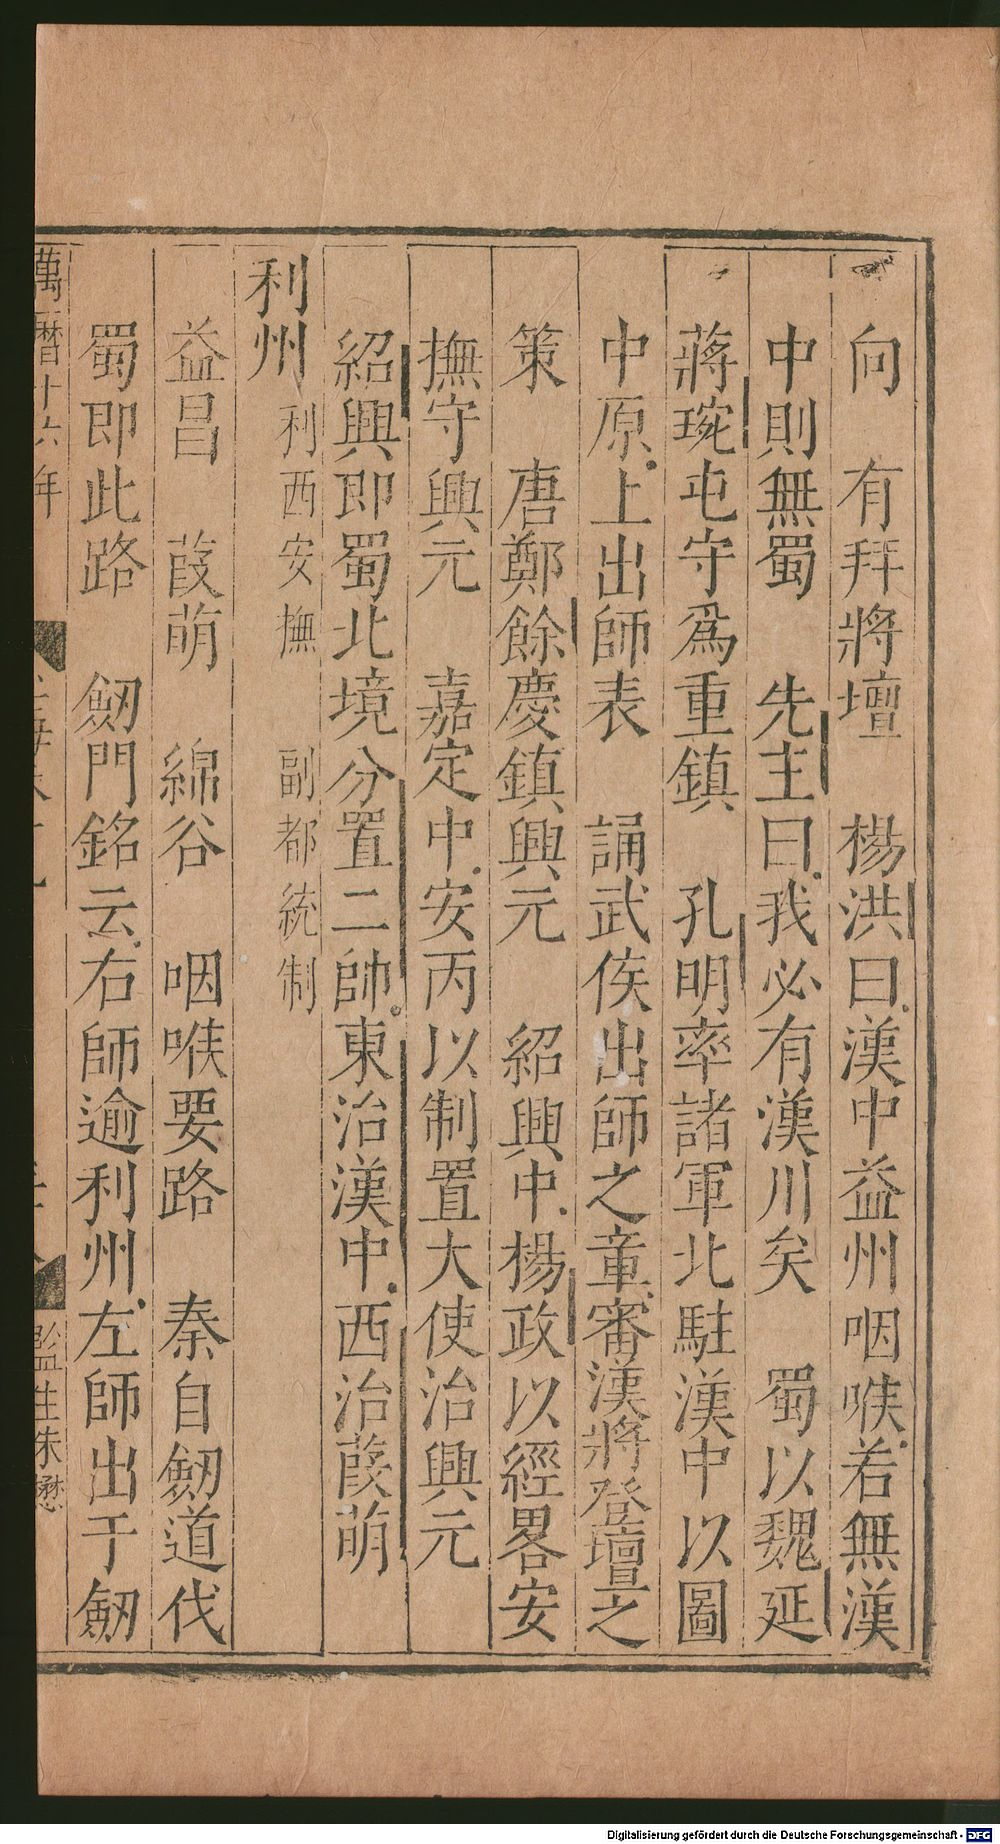 向　有拜將壇　楊洪曰漢中益州咽喉若無漢
中則無蜀　先主曰我必有漢川矣　蜀以魏延
蔣琬屯守爲重鎮　孔明率諸軍北駐漢中以圖
中原上出師表　誦武侯出師之章審漢將登壇之
策　唐鄭餘慶鎮興元　紹興中楊政以經畧安
撫守興元　嘉定中安丙以制置大使治興元
紹興即蜀北境分置二帥東治漢中西治葭萌
利州　利西安撫　副都統制
益昌　葭萌　綿谷　咽喉要路　秦自劒道伐
蜀即此路　劒門銘云右師逾利州左師出于劒
萬曆十六年
監生朱懋
Digitalisierung gefördert durch die Deutsche Forschungsgemeinschaft - DFG